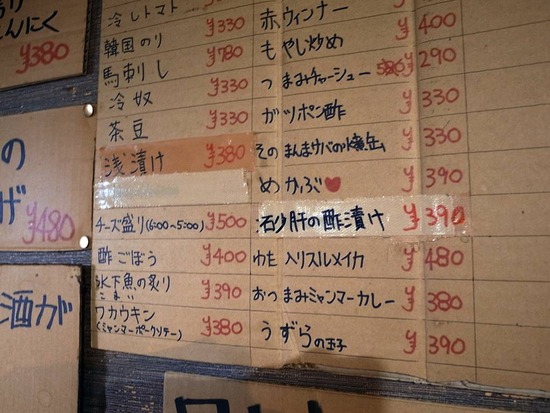 冷しトマト
韓国のり ¥330
馬刺し ¥780
冷奴 ¥330
茶豆 ¥330
浅漬け ¥380
チーズ盛り(6:00〜5:00) ¥500
酢ごぼう ¥400
氷下魚の炙り ¥390
こまい
ワカウキン ¥380
(ミャンマーポークソテー)
赤ウィンナー
もやし炒め ¥400
つまみチャーシュー ¥290
ガツポン酢 ¥330
そのまんまサバの燻缶 ¥330
めかぶ♥ ¥390
砂肝の酢漬け ¥390
わた入りスルメイカ ¥480
おつまみミャンマーカレー ¥380
うずらの玉子 ¥390
んにく
¥380
の
げ
¥480
酒カド